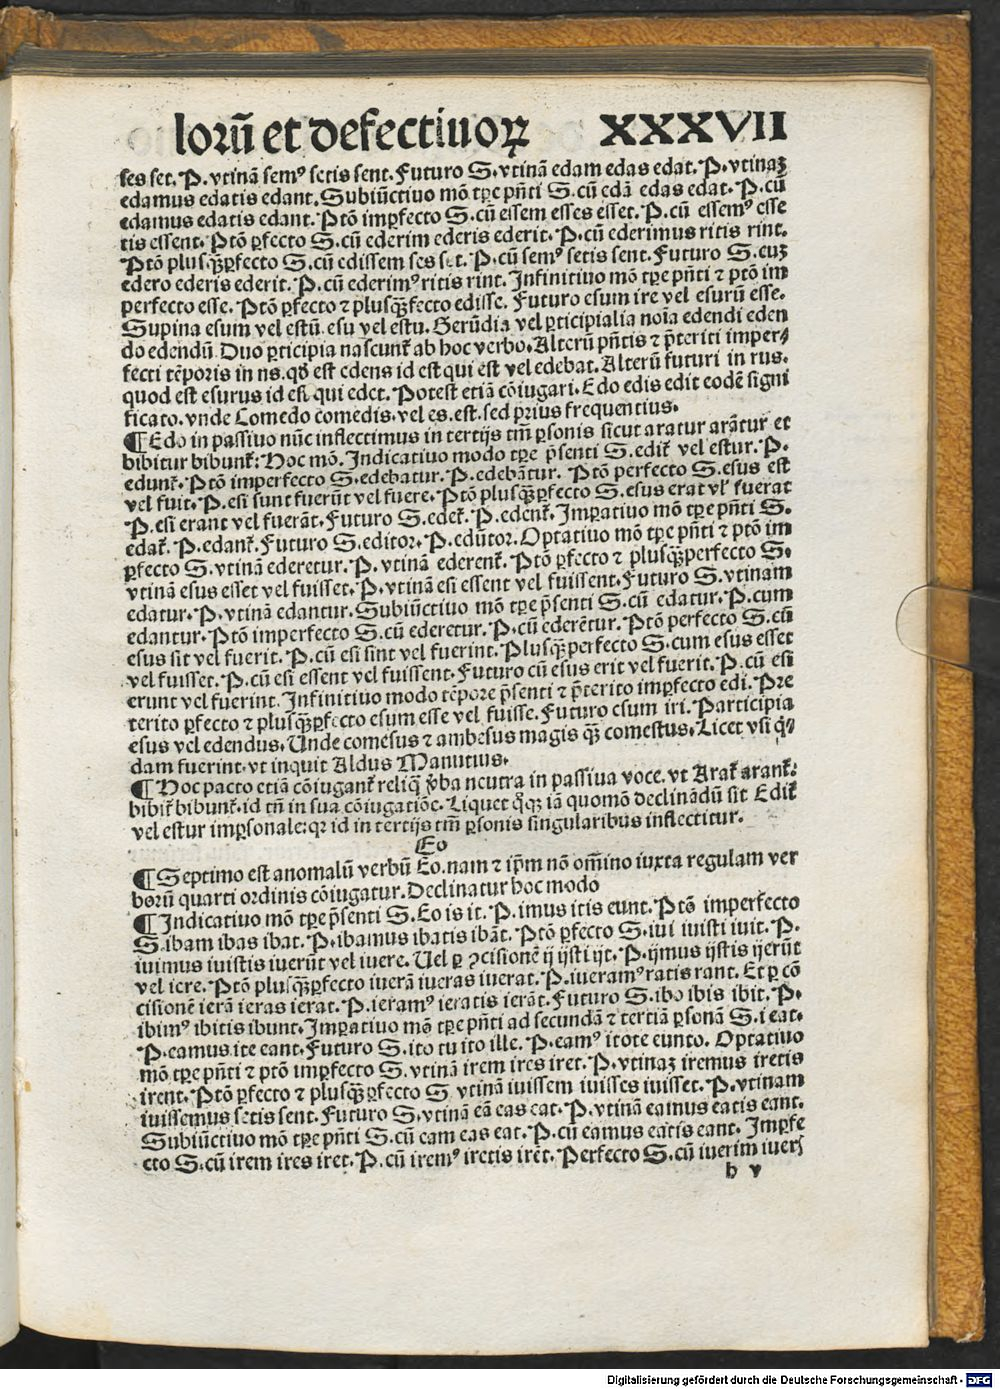 lorū et defectiuoꝝ XXXVII
ses set. P. vtinā semꝰ setis sent. Futuro S. vtinā edam edas edat. P. vtinaꝫ
edamus edatis edant. Subiūctiuo mō tꝑe pñti S. cū edā edas edat. P. cū
edamus edatis edant. Ptō imꝑfecto S. cū essem esses esset. P. cū essemꝰ esse
tis essent. Ptō ꝑfecto S. cū ederim ederis ederit. P. cū ederimus ritis rint.
Ptō plusq̄ꝑfecto S. cū edissem ses set. P. cū semꝰ setis sent. Futuro S. cuꝫ
edero ederis ederit. P. cū ederimꝰ ritis rint. Infinitiuo mō tꝑe pñti ⁊ ptō im
perfecto esse. Ptō ꝑfecto ⁊ plusq̄ꝑfecto edisse. Futuro esum ire vel esurū esse.
Supina esum vel estū. esu vel estu. Gerūdia vel ꝑticipialia noīa edendi eden
do edendū Duo ꝑticipia nascunt᷑ ab hoc verbo. Alterū pñtis ⁊ p̄teriti imper⸗
fecti tēporis in ns. qđ est edens id est qui est vel edebat. Alterū futuri in rus.
quod est esurus id est qui edet. Potest etiā cōiugari. Edo edis edit eodē signi
ficato. vnde Comedo comedis. vel es. est. sed prius frequentius.
¶ Edo in passiuo nūc inflectimus in tertijs tm̄ ꝑsonis sicut aratur arātur et
bibitur bibunt᷑: Hoc mō. Indicatiuo modo tꝑe p̄senti S. edit᷑ vel estur. P.
edunt᷑. Ptō imperfecto S. edebatur. P. edebātur. Ptō perfecto S. esus est
vel fuit. P. esi sunt fuerūt vel fuere. Ptō plusq̄ꝑfecto S. esus erat vl᷑ fuerat
P. esi erant vel fuerāt. Futuro S. edet᷑. P. edent᷑. Imꝑatiuo mō tꝑe pñti S.
edat᷑. P. edant᷑. Futuro S. editor. P. edūtor. Optatiuo mō tꝑe pñti ⁊ ptō im
ꝑfecto S. vtinā ederetur. P. vtinā ederent᷑. Ptō ꝑfecto ⁊ plusq̄perfecto S.
vtinā esus esset vel fuisset. P. vtinā esi essent vel fuissent. Futuro S. vtinam
edatur. P. vtinā edantur. Subiūctiuo mō tꝑe p̄senti S. cū edatur. P. cum
edantur. Ptō imperfecto S. cū ederetur. P. cū ederētur. Ptō perfecto S. cū
esus sit vel fuerit. P. cū esi sint vel fuerint. Plusq̄perfecto S. cum esus esset
vel fuisset. P. cū esi essent vel fuissent. Futuro cū esus erit vel fuerit. P. cū esi
erunt vel fuerint. Infinitiuo modo tēpore p̄senti ⁊ p̄terito imꝑfecto edi. Pre
terito ꝑfecto ⁊ plusq̄ꝑfecto esum esse vel fuisse. Futuro esum iri. Participia
esus vel edendus. Unde comesus ⁊ ambesus magis q̄ꝫ comestus. Licet vsi q̇⸗
dam fuerint. vt inquit Aldus Manutius.
¶ Hoc pacto etiā cōiugant᷑ reliq̄ v̓ba neutra in passiua voce. vt Arat᷑ arant᷑:
bibit᷑ bibunt᷑. id tn̄ in sua cōiugatiōe. Liquet q̊qꝫ iā quomō declinādū sit Edit᷑
vel estur imꝑsonale: qꝛ id in tertijs tm̄ ꝑsonis singularibus inflectitur.
Eo
¶ Septimo est anomalū verbū Eo. nam ⁊ ip̄m nō om̄ino iuxta regulam ver
borū quarti ordinis cōiugatur. Declinatur hoc modo
¶ Indicatiuo mō tꝑe p̄senti S. Eo is it. P. imus itis eunt. Ptō imperfecto
S. ibam ibas ibat. P. ibamus ibatis ibāt. Ptō ꝑfecto S. iui iuisti iuit. P.
iuimus iuistis iuerūt vel iuere. Uel ꝑ ꝯcisionē ij ijsti ijt. P. ijmus ijstis ijerūt
vel iere. Ptō plusq̄ꝑfecto iuerā iueras iuerat. P. iueramꝰ ratis rant. Et ꝑ cō
cisionē ierā ieras ierat. P. ieramꝰ ieratis ierāt. Futuro S. ibo ibis ibit. P.
ibimꝰ ibitis ibunt. Imꝑatiuo mō tꝑe pñti ad secundā ⁊ tertiā ꝑsonā S. i eat.
P. eamus. ite eant. Futuro S. ito tu ito ille. P. eamꝰ itote eunto. Optatiuo
mō tꝑe pñti ⁊ ptō imꝑfecto S. vtinā irem ires iret. P. vtinaꝫ iremus iretis
irent. Ptō ꝑfecto ⁊ plusq̄ꝑfecto S vtinā iuissem iuisses iuisset. P. vtinam
iuissemus setis sent. Futuro S. vtinā eā eas eat. P. vtinā eamus eatis eant.
Subiūctiuo mō tꝑe pñti S. cū eam eas eat. P. cū eamus eatis eant. Imꝑfe
cto S. cū irem ires iret. P. cū iremꝰ iretis irēt. Perfecto S. cū iuerim iueri
h v
Digitalisierung gefördert durch die Deutsche Forschungsgemeinschaft - DFG